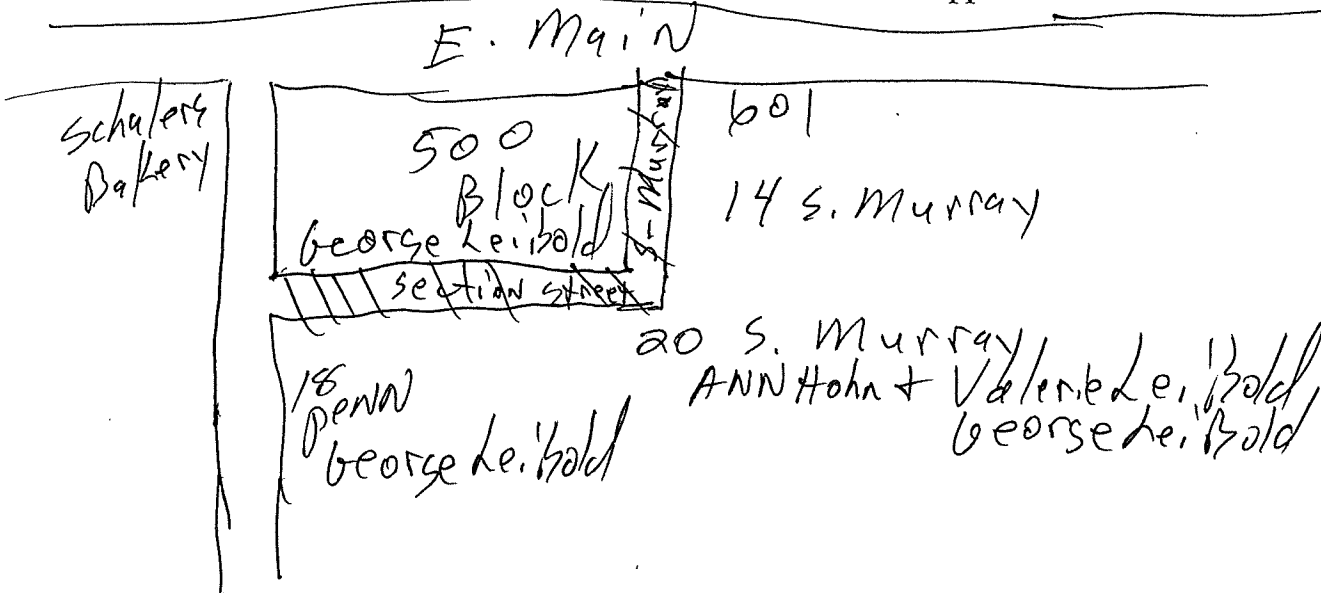 E. Main
Schulers
Bakery
500
Block
George Leibold
S-Murray
601
14 S. Murray
Section Street
20 S. Murray
ANN Hohn + Valerie Leibold
George Leibold
18
Penn
George Leibold